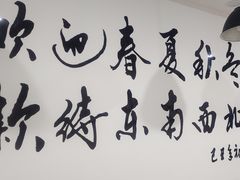 欢迎春夏秋冬
款待东南西北